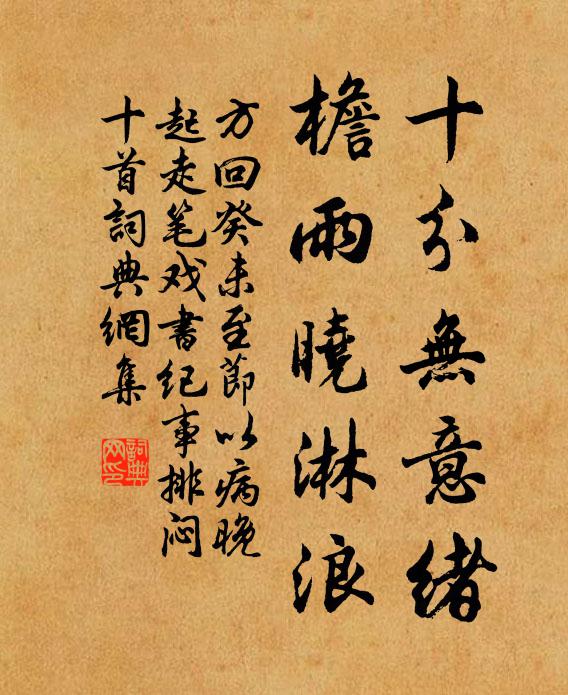 十分無意緒
檐雨曉淋浪
方回癸未至節以病晚
起走笔戏書纪事排闷
十首詞典網集
詞典
网印